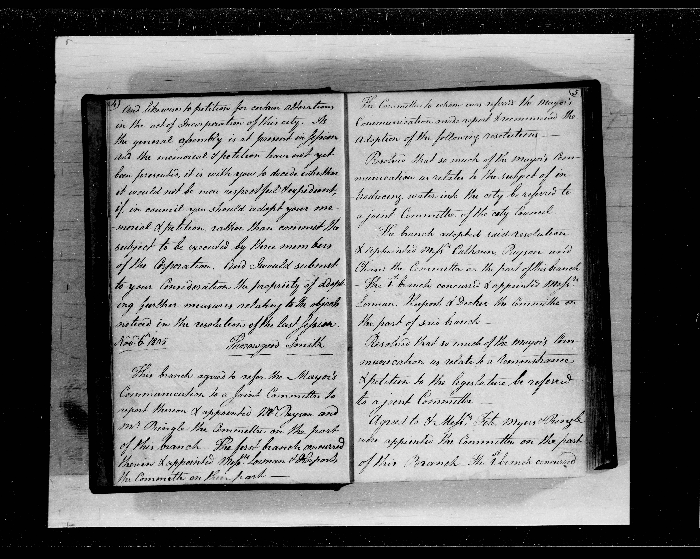 4)
and likewise to petition for certain alterations
in the act of Incorporation of this city. As
the general assembly is at present in Session
and the memorial & petition have not yet
been presented, it is with you to decide whether
it would not be more respectful & expedient,
if in council you should adopt your me-
morial & petition, rather than commit the
subject to be executed by three members
of the Corporation. And I would submit
to your Consideration the propriety of adopt
ing further measures relating to the objects
noticed in the resolutions of the last Session.
Novr. 6th 1805 Thorowgood Smith
This branch agreed to refer the Mayor's
Communication to a Joint Committee to
report thereon & appointed Mr Pryson and
Mr Pringle the Committee on the part
of this branch. The first branch concurred
therein & appointed Messrs Lorman &
the Committee on their part —
5
The Committee to whom was referd the Mayor's
Communication made report & recommend the
adoption of the following resolutions. —
Resolve that so much of the Mayor's Com-
munication as relates to the subject of in
troducing water into the city be referred to
a joint Committee of the city Council
The branch adopted said resolution
& appointed Messrs Calhoun Pryson and
the Committee on the part of this branch
— The 1st branch concurred & appointed Messrs
Lorman, & Decker the Committee on
the part of said branch —
Resolve that so much of the Mayor's Com-
munication as relate to a remonstrance
& petition to the legislature be referred
to a joint Committee —
Agreed to & Messrs Myers & Pringle
were appointed the Committee on the part
of this Branch. The 1st branch concurred